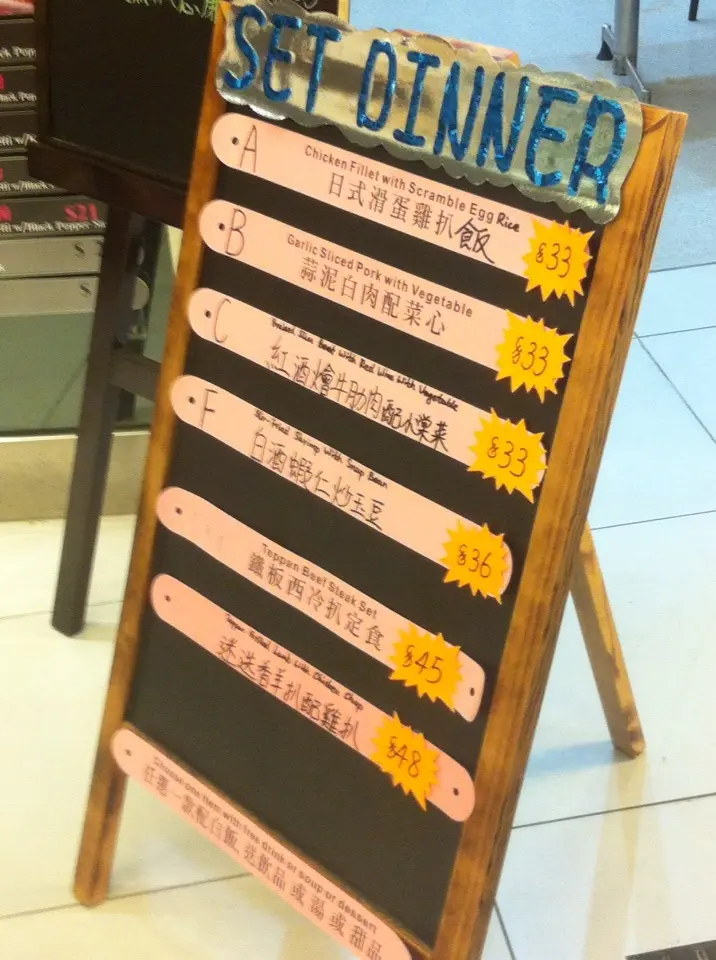 SET DINNER
A
Chicken Fillet with Scramble Egg Rice
日式滑蛋雞扒飯
$33
B
Garlic Sliced Pork with Vegetable
蒜泥白肉配菜心
$33
C
Braised Slim Beef With Red Wine With Vegetable
紅酒燴牛肋肉配小棠菜
$33
F
Stir-Fried Shrimp With Snap Bean
白酒蝦仁炒玉豆
$36
Teppan Beef Steak Set
鐵板西冷扒定食
$45
Lamb With Chicken Chop
迷迭香羊扒配雞扒
$48
Choose one item with free drink or soup or dessert
任選一款配白飯,送飲品或湯或甜品
$21